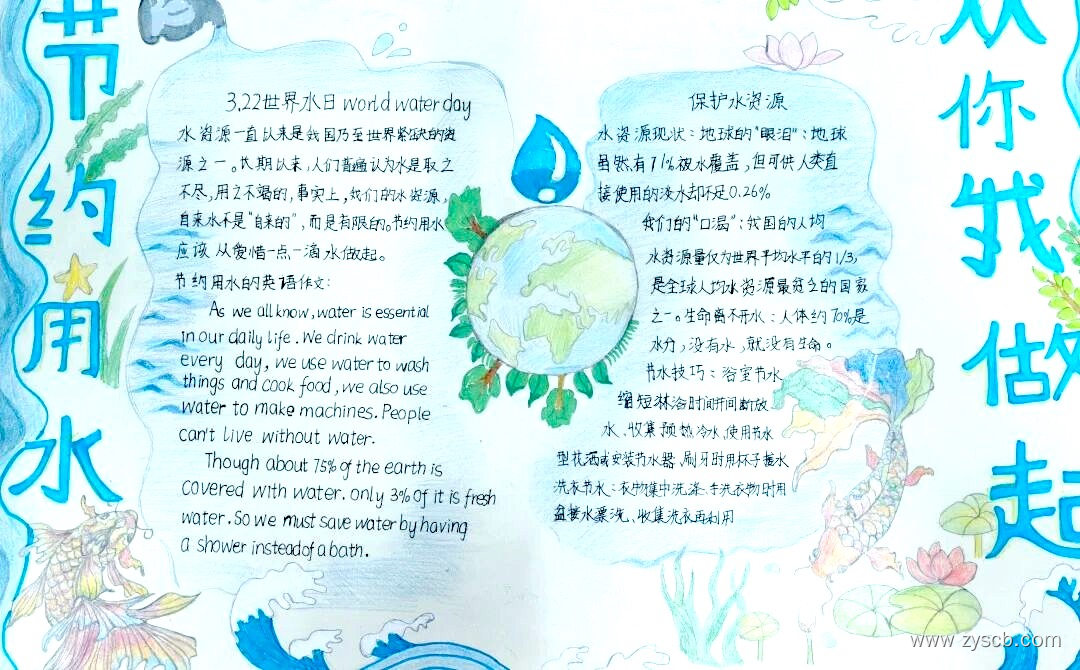 节约用水
从你我做起
3.22世界水日 world water day
水资源一直以来是我国乃至世界紧缺的资
源之一。长期以来,人们普遍认为水是取之
不尽,用之不竭的,事实上,我们的水资源,
自来水不是"自来的",而是有限的。节约用水
应该从爱惜一点一滴水做起。
节约用水的英语作文:
As we all know, water is essential
in our daily life. We drink water
every day, we use water to wash
things and cook food, we also use
water to make machines. People
can't live without water.
Though about 75% of the earth is
covered with water. only 3% of it is fresh
water. So we must save water by having
a shower instead of a bath.
保护水资源
水资源现状:地球的"眼泪":地球
虽然有71%被水覆盖,但可供人类直
接使用的淡水却不足0.26%
我们的"口渴":我国的人均
水资源量仅为世界平均水平的1/3,
是全球人均水资源最贫乏的国家
之一。生命离不开水:人体约70%是
水分,没有水,就没有生命。
节水技巧:浴室节水
缩短淋浴时间并间断放
水、收集预热冷水,使用节水
型花洒或安装节水器,刷牙时用杯子接水
洗衣节水:衣物集中洗涤、手洗衣物时用
盆接水漂洗、收集洗衣再利用
www.zyscb.com